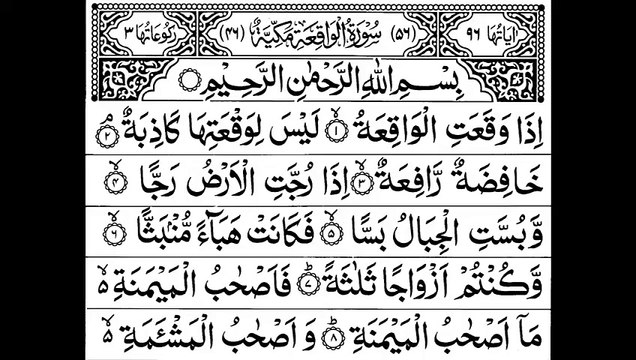 اٰیاتھا ۹۶ (۵۶) سُوْرَةُ الْوَاقِعَةِ مَكِّيَّةٌ (۴۶) رکوعاتھا ۳
بِسْمِ اللّٰهِ الرَّحْمٰنِ الرَّحِيْمِ
اِذَا وَقَعَتِ الْوَاقِعَةُ ۙ‏﴿۱﴾ لَيْسَ لِوَقْعَتِهَا كَاذِبَةٌ ۘ‏﴿۲﴾
خَافِضَةٌ رَّافِعَةٌ ۙ‏﴿۳﴾ اِذَا رُجَّتِ الْاَرْضُ رَجًّا ۙ‏﴿۴﴾
وَّبُسَّتِ الْجِبَالُ بَسًّا ۙ‏﴿۵﴾ فَكَانَتْ هَبَآءً مُّنْۢبَثًّا ۙ‏﴿۶﴾
وَّكُنْتُمْ اَزْوَاجًا ثَلٰثَةً ؕ‏﴿۷﴾ فَاَصْحٰبُ الْمَيْمَنَةِ ۙ۬
مَاۤ اَصْحٰبُ الْمَيْمَنَةِ ؕ‏﴿۸﴾ وَاَصْحٰبُ الْمَشْـَٔمَةِ ۙ۬